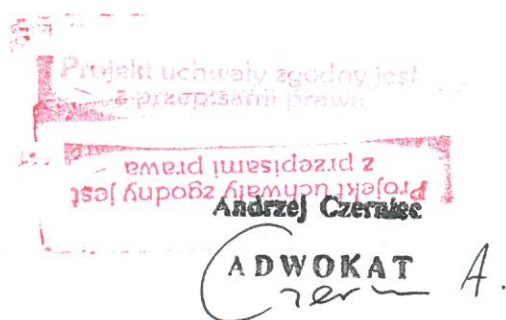 Projekt uchwały zgodny jest
z przepisami prawa
Projekt uchwały zgodny jest
z przepisami prawa
Andrzej Czerniec
ADWOKAT
A.